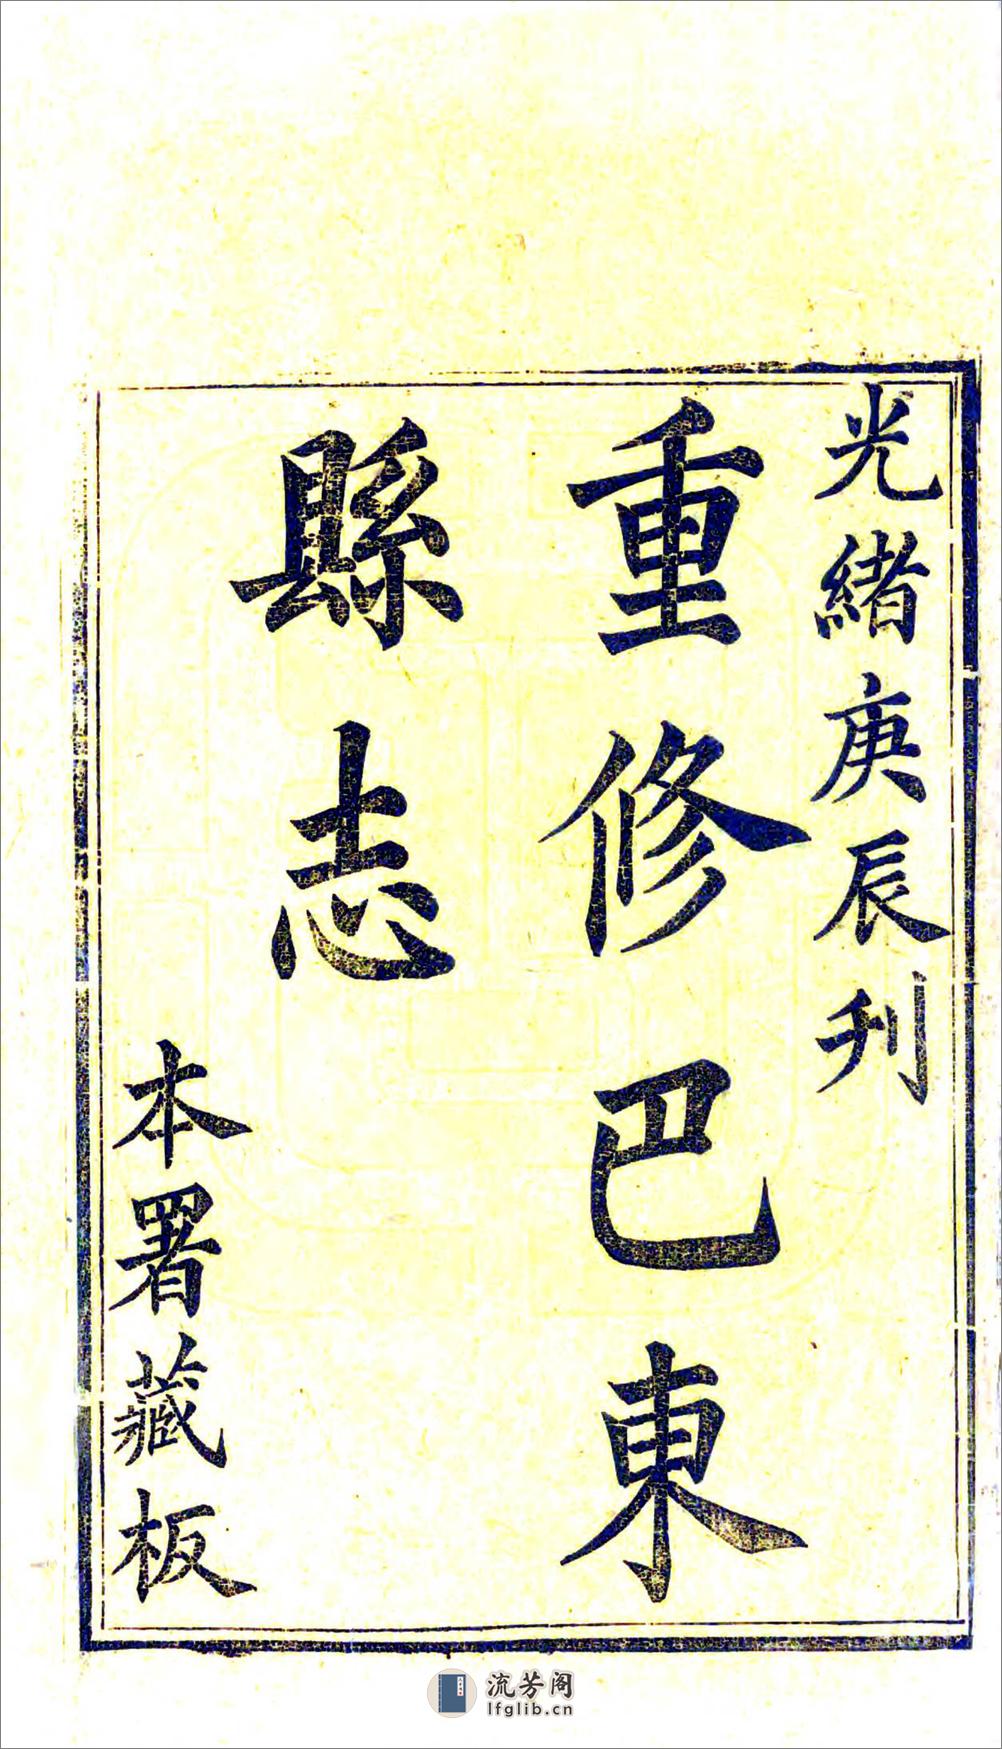 光緒庚辰刋
重修巴東
縣志
本署藏板
流芳阁
lfglib.cn